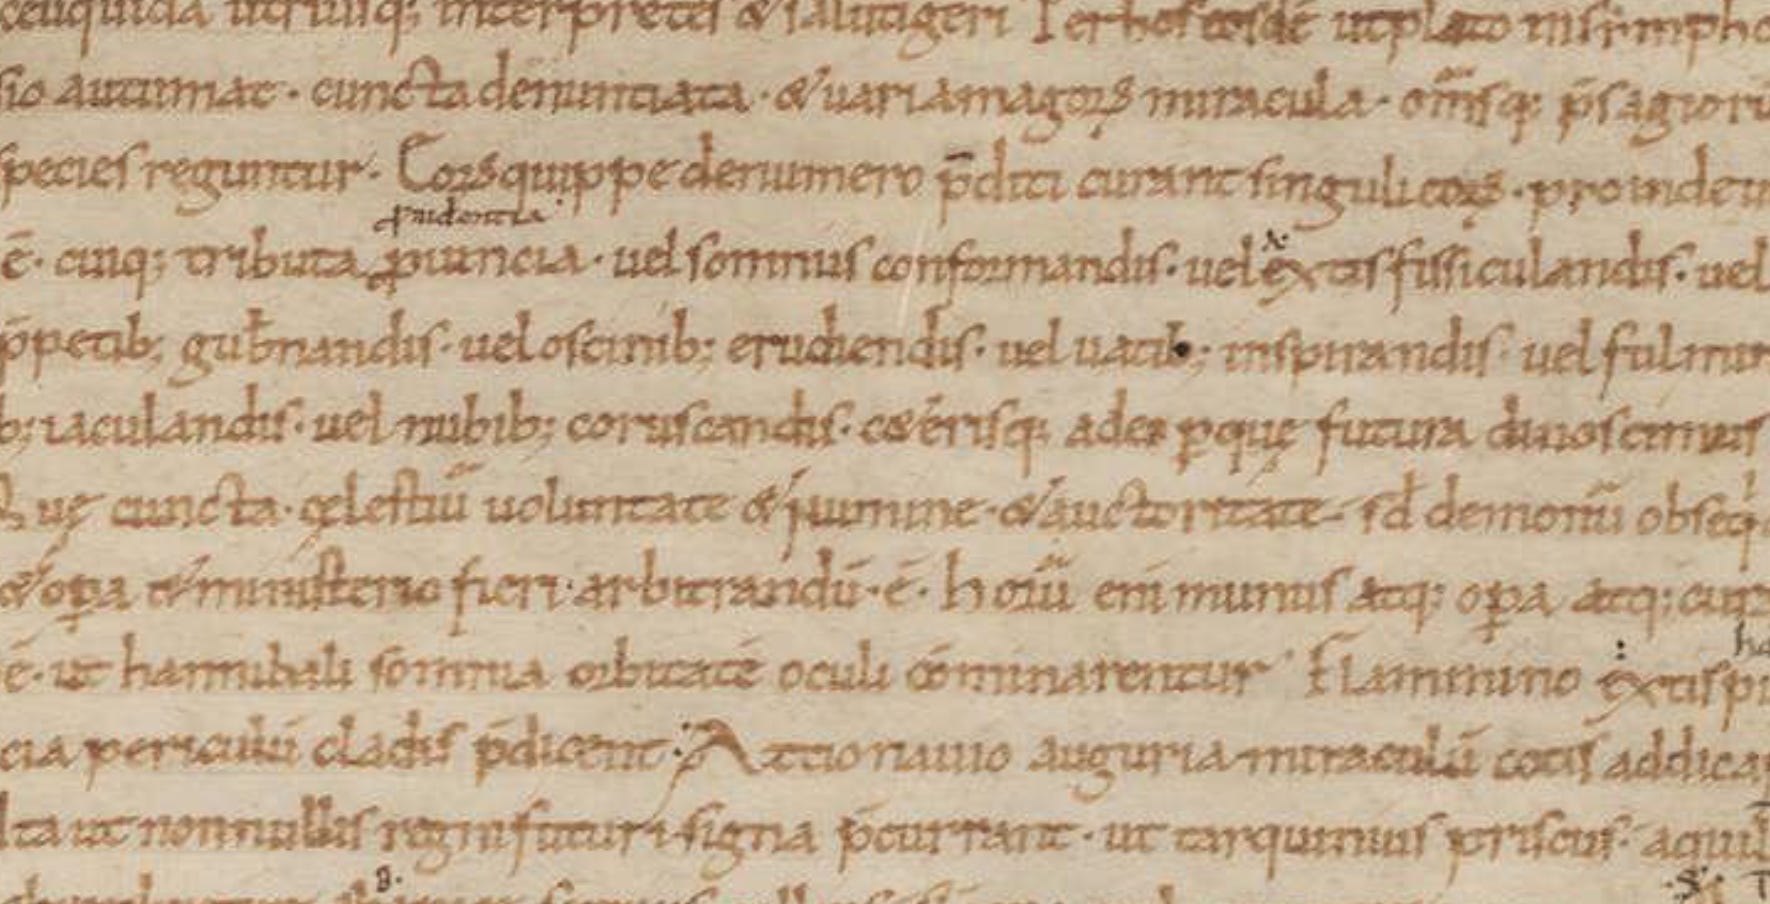 ceuquida utriusq; interpretes & salutigeri Per hos eosdē ut plato in simpho
sio autumat · cuncta denuntiata · & uaria magorꝝ miracula · om̄sq; p̄sagiorū
species reguntur · Eorꝝ quippe de numero p̄diti curant singuli eorꝝ · proinde u
prudentia
ē · cuiq; tributa ꝓuincia · uel somnus conformandis · uel extis fissiculandis · uel
p̄petib; gub̄nandis · uel oscinib; erudiendis · uel uatib; inspirandis · uel fulmin
b; iaculandis · uel nubib; coruscandis · cēterisq; adeo ꝑ quę futura dinoscimus
Quę cuncta · cęlestiū uoluntate & numine · & auctoritate · sd̄ demonū obseq
& oꝑa & ministerio fieri · arbitrandū · ē · horū eni munus atq; oꝑa atq; cura
ē · ut hannibali somnia orbitatē oculi cōminarentur Flaminino extispi
cia periculū cladis p̄dicent : Attio nauio auguria miraculū cotis addica
lta ut nonnullis regni futuri signa p̄currant · ut tarquinius priscus · aquil